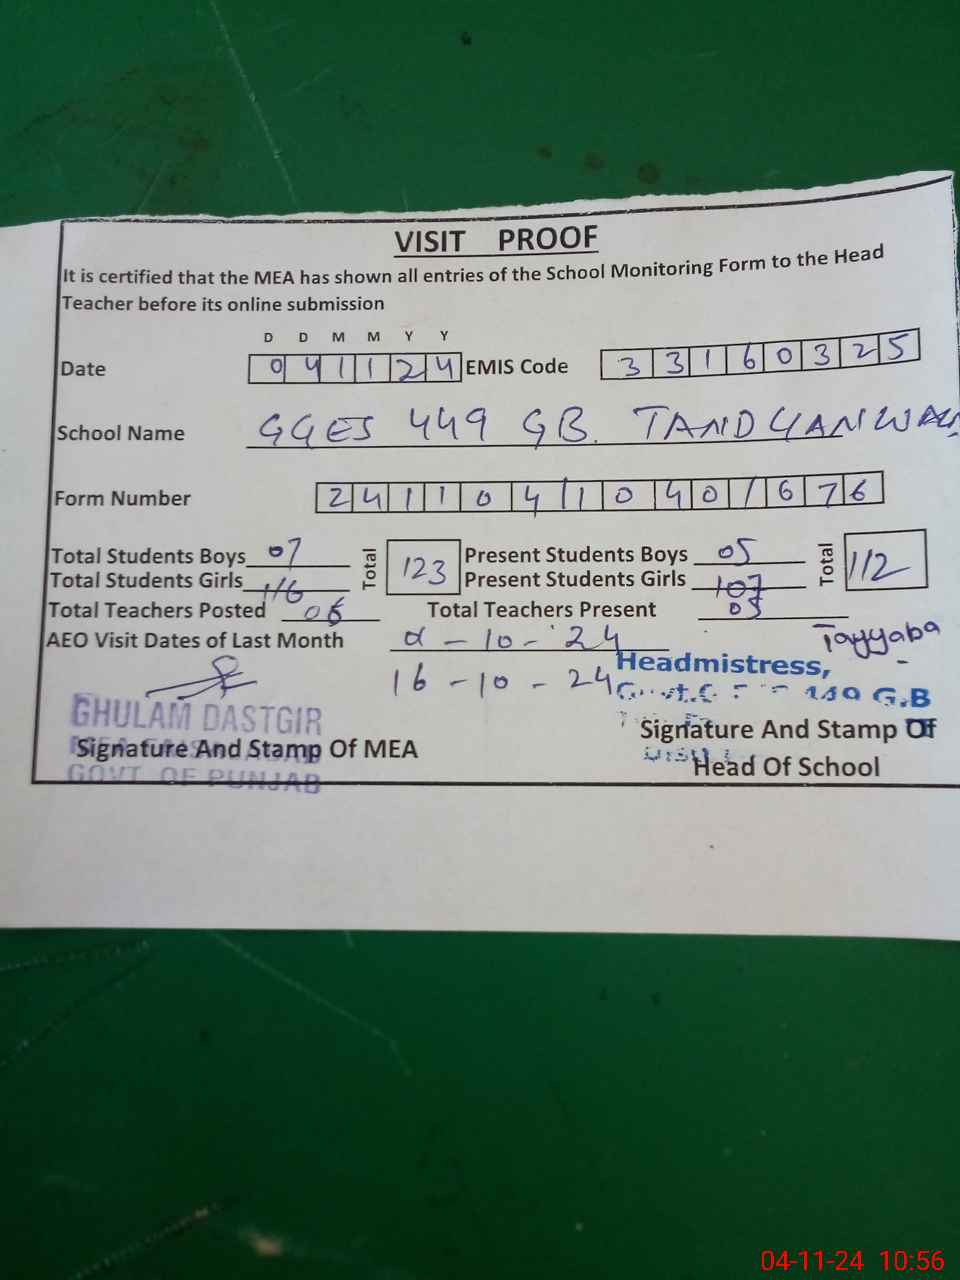 VISIT PROOF
It is certified that the MEA has shown all entries of the School Monitoring Form to the Head
Teacher before its online submission
D D M M Y Y
Date 0 4 1 1 2 4 EMIS Code 3 3 1 6 0 3 2 5
School Name GGES 449 GB. TANDLIANWALA
Form Number 2 4 1 1 0 4 1 0 4 0 1 6 7 6
Total Students Boys 07 Total 123 Present Students Boys 05 Total 112
Total Students Girls 116 Present Students Girls 107
Total Teachers Posted 06 Total Teachers Present 05
AEO Visit Dates of Last Month -10-24 Tayyaba
16-10-24 Headmistress,
G.B
GHULAM DASTGIR
Signature And Stamp Of MEA Signature And Stamp Of
GOVT OF PUNJAB Head Of School
04-11-24 10:56